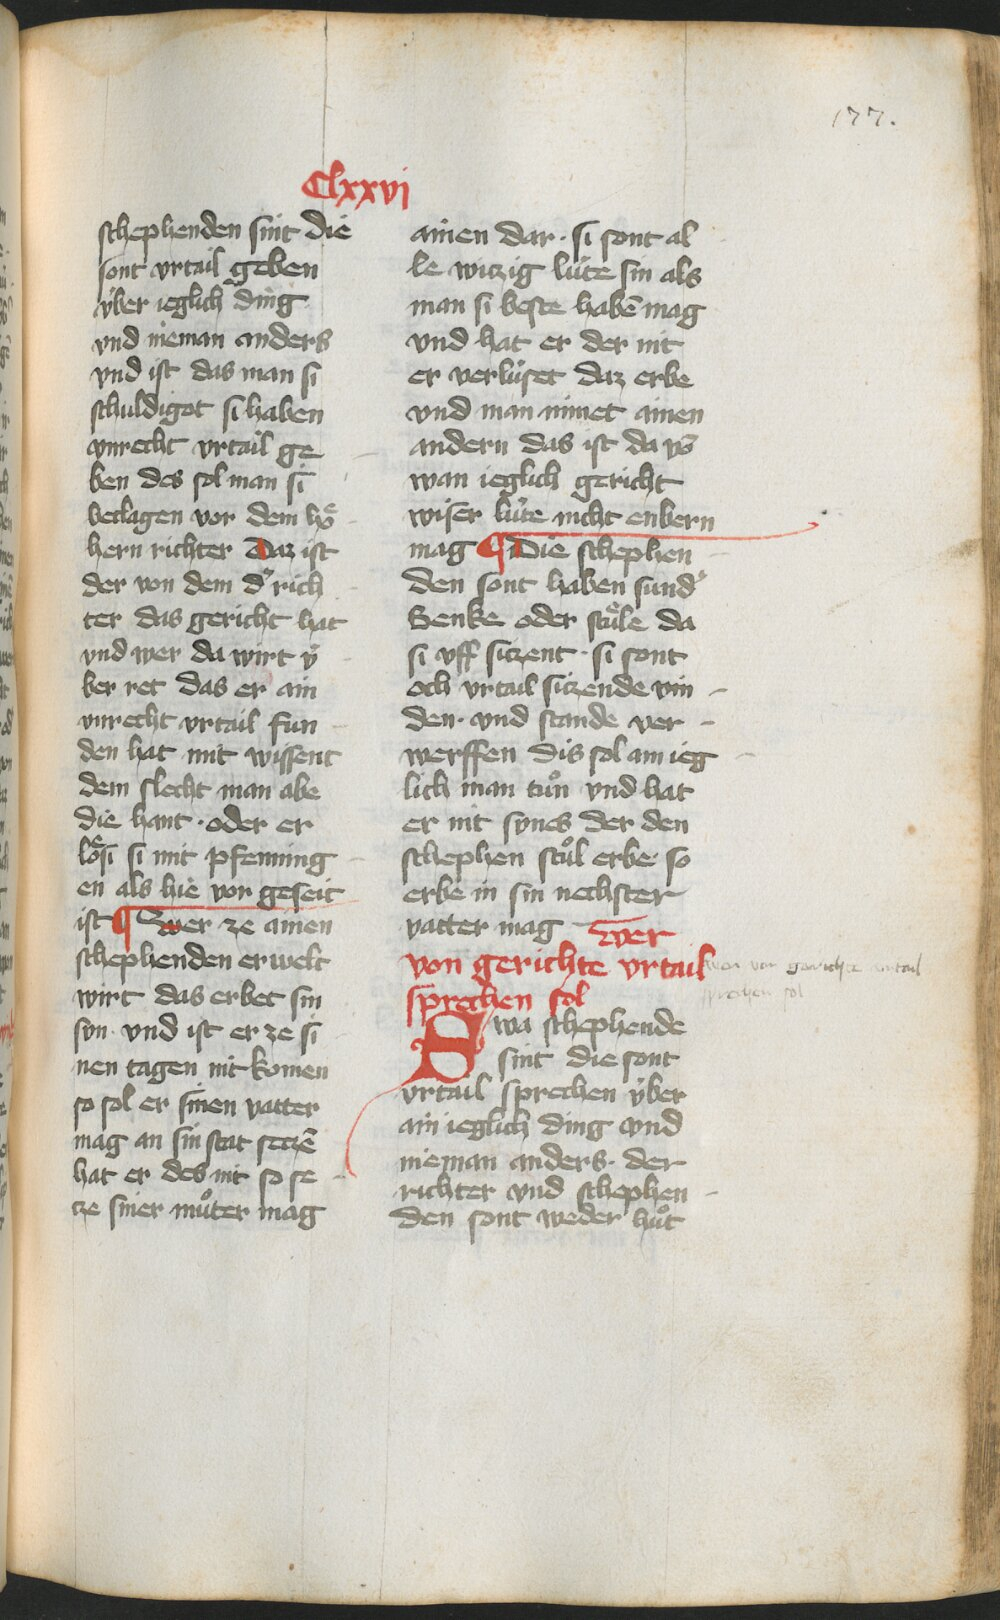 177.
Clxxvi
schephenden sint die
sont vrtail geben
v̈ber ieglich ding
vnd nieman anders
vnd ist das man si
schuldigot si haben
vnrecht vrtail ge
ben des sol man si
beclagen vor dem hoͤ
hern richter Daz ist
der von dem dˀ rich
ter das gericht hat
vnd wer da wirt v̈
ber ret das er ain
vnrecht vrtail fun
den hat mit wissent
dem slecht man abe
die hant · oder er
loͤsi si mit pfenning
en als hie vor geseit
ist ¶ Swer ze ainen
schephenden erwelt
wirt das erbet sin
syn · vnd ist er ze si
nen tagen nit komen
so sol er sinen vatter
mag an sin stat setzē
hat er des nit so se
tze siner muͦter mag
ainen dar · si sont al
le witzig lüte sin als
man si beste habē mag
vnd hat er der nit
er verlüset daz erbe
vnd man nimet ainen
andern das ist da vō
wan ieglich gericht
wiser lüte nicht enbern
mag ¶ Die schephen
den sont haben sundˀ
Benke oder stuͤle da
si vff sitzent · si sont
och vrtail sitzende vin
den · vnd stande ver
werffen dis sol ain ieg
lich man tuͦn vnd hat
er nit synes der den
schephen stuͦl erbe so
erbe in sin nechster
vatter mag Wer
von gerichte vrtail
sprechen sol
wer von gerichte vrtail
sprechen sol
Swa schephende
sint die sont
vrtail sprechen v̈ber
ain ieglich ding vnd
nieman anders · der
richter vnd schephen
den sont weder huͦt